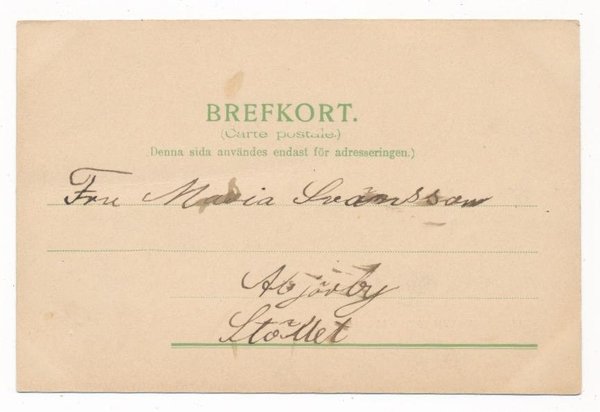 BREFKORT.
(Carte postale.)
(Denna sida användes endast för adresseringen.)
Fru Maria Svänsson
Abjörby
Stöllet